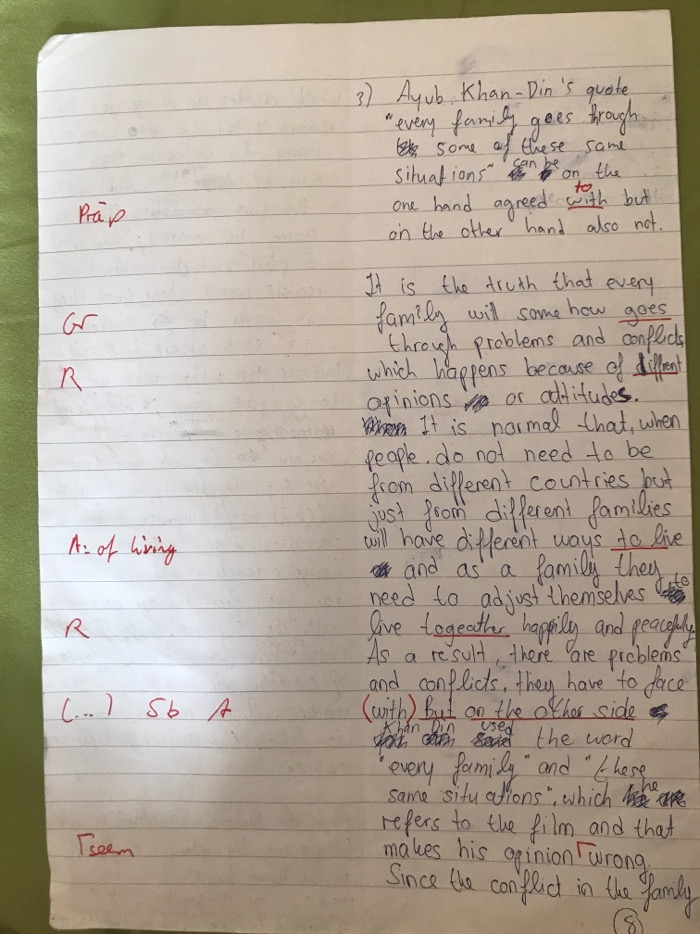 3) Ayub Khan-Din's quote
"every family goes through
some of these same
situations" can be on the
Präp one hand agreed with to but
on the other hand also not.
It is the truth that every
Gr family will somehow goes
through problems and conflicts
R which happens because of diffrent
opinions or attitudes.
It is normal that, when
people do not need to be
from different countries but
just from different families
A: of living will have different ways to live
and as a family they
need to adjust themselves to
R live togeather happily and peacefully.
As a result, there are problems
and conflicts, they have to face
(...) Sb A (with) But on the other side
Khan Din used the word
"every family" and "these
same situations", which he
refers to the film and that
Γseem makes his opinion Γ wrong.
Since the conflict in the family
8